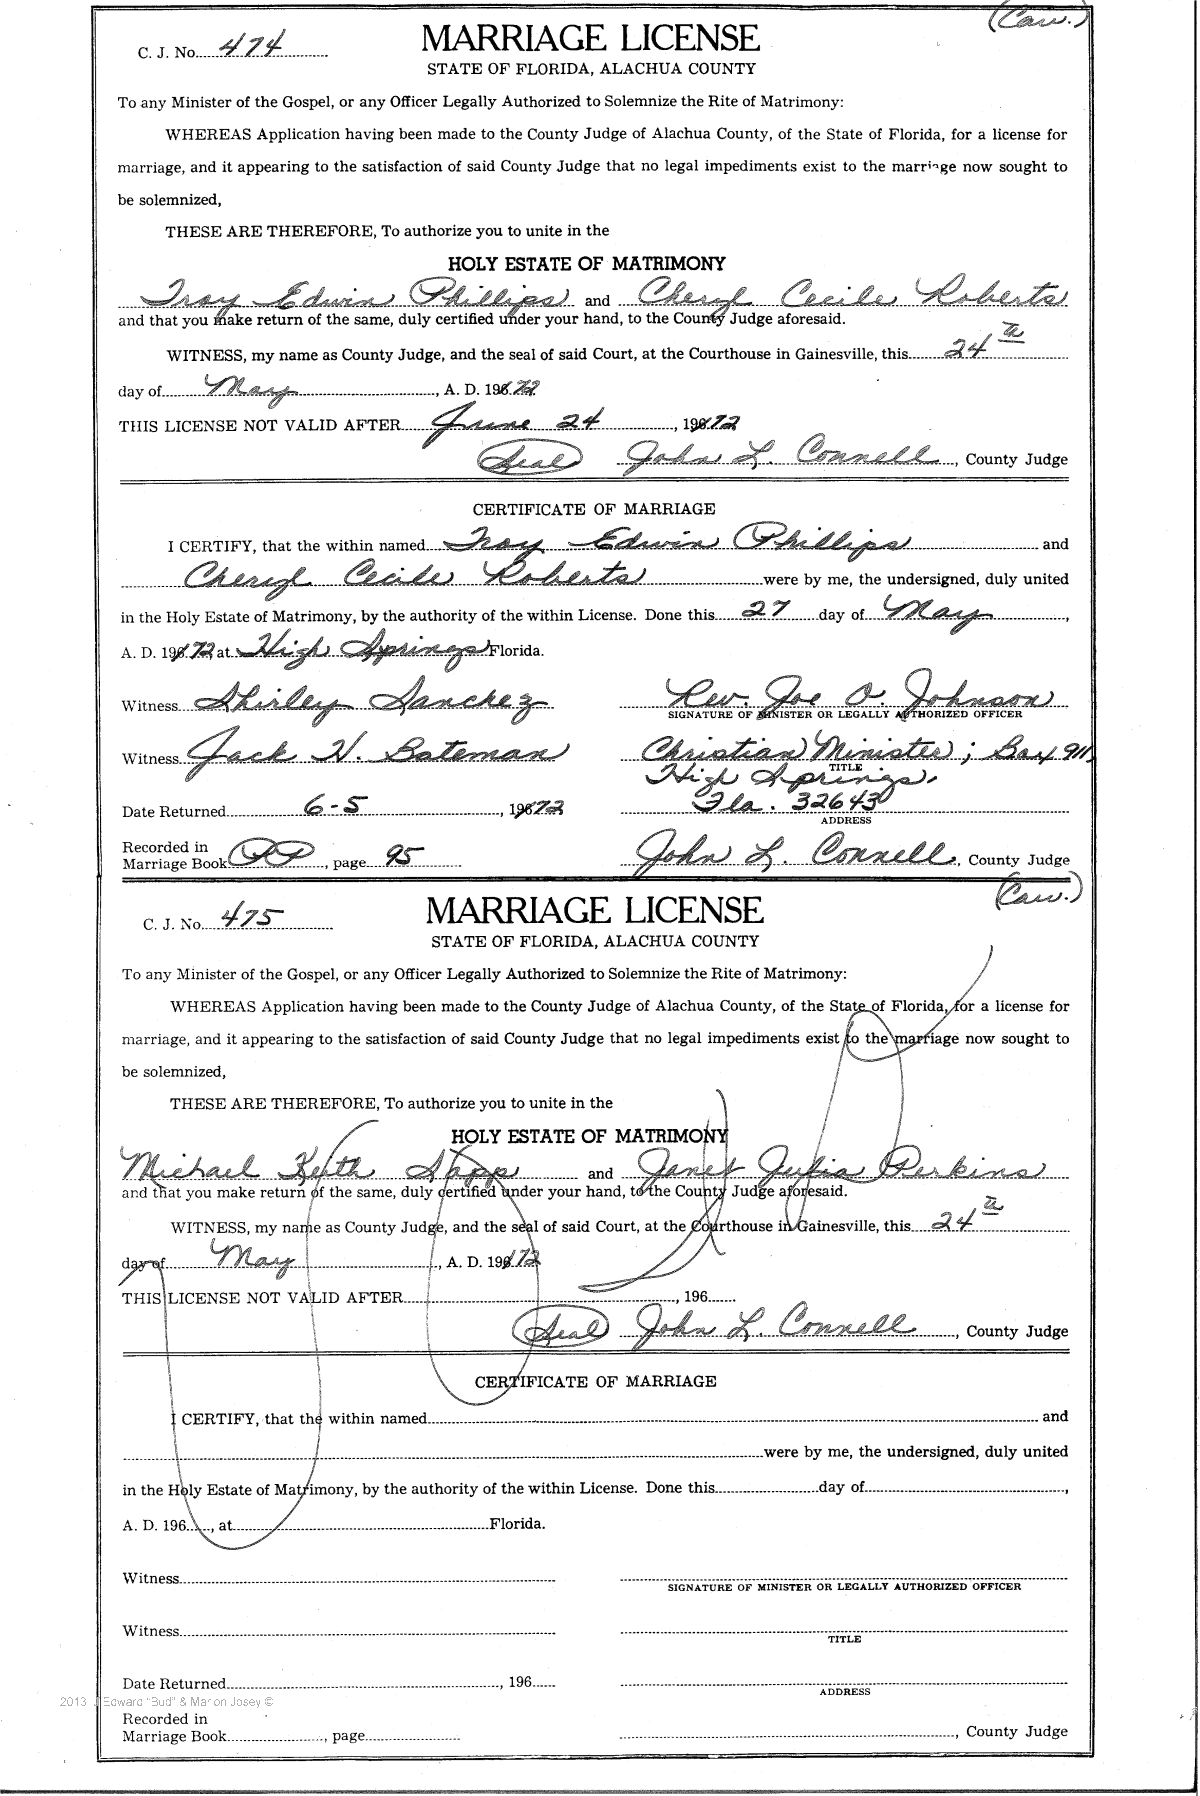 (Cau.)
C. J. No. 474
MARRIAGE LICENSE
STATE OF FLORIDA, ALACHUA COUNTY
To any Minister of the Gospel, or any Officer Legally Authorized to Solemnize the Rite of Matrimony:
WHEREAS Application having been made to the County Judge of Alachua County, of the State of Florida, for a license for
marriage, and it appearing to the satisfaction of said County Judge that no legal impediments exist to the marriage now sought to
be solemnized,
THESE ARE THEREFORE, To authorize you to unite in the
HOLY ESTATE OF MATRIMONY
Troy Edwin Phillips and Cheryl Cecile Roberts
and that you make return of the same, duly certified under your hand, to the County Judge aforesaid.
WITNESS, my name as County Judge, and the seal of said Court, at the Courthouse in Gainesville, this 24th
day of May, A. D. 1972
THIS LICENSE NOT VALID AFTER June 24, 1972
(Seal) John L. Connell, County Judge
CERTIFICATE OF MARRIAGE
I CERTIFY, that the within named Troy Edwin Phillips and
Cheryl Cecile Roberts were by me, the undersigned, duly united
in the Holy Estate of Matrimony, by the authority of the within License. Done this 27 day of May,
A. D. 1972, at High Springs Florida.
Witness Shirley Sanchez Rev. Joe O. Johnson
SIGNATURE OF MINISTER OR LEGALLY AUTHORIZED OFFICER
Witness Jack H. Bateman Christian Minister; Box 911,
TITLE
High Springs,
Date Returned 6-5, 1972 Fla. 32643
ADDRESS
Recorded in
Marriage Book PP, page 95 John L. Connell, County Judge
(Cau.)
C. J. No. 475
MARRIAGE LICENSE
STATE OF FLORIDA, ALACHUA COUNTY
To any Minister of the Gospel, or any Officer Legally Authorized to Solemnize the Rite of Matrimony:
WHEREAS Application having been made to the County Judge of Alachua County, of the State of Florida, for a license for
marriage, and it appearing to the satisfaction of said County Judge that no legal impediments exist to the marriage now sought to
be solemnized,
THESE ARE THEREFORE, To authorize you to unite in the
HOLY ESTATE OF MATRIMONY
Michael Keith Sapp and Janet Julia Perkins
and that you make return of the same, duly certified under your hand, to the County Judge aforesaid.
WITNESS, my name as County Judge, and the seal of said Court, at the Courthouse in Gainesville, this 24th
day of May, A. D. 1972
THIS LICENSE NOT VALID AFTER, 196
(Seal) John L. Connell, County Judge
Void
CERTIFICATE OF MARRIAGE
I CERTIFY, that the within named and
were by me, the undersigned, duly united
in the Holy Estate of Matrimony, by the authority of the within License. Done this day of,
A. D. 196, at Florida.
Witness
SIGNATURE OF MINISTER OR LEGALLY AUTHORIZED OFFICER
Witness
TITLE
Date Returned, 196
ADDRESS
2013 J Edward "Bud" & Marion Josey ©
Recorded in
Marriage Book, page , County Judge